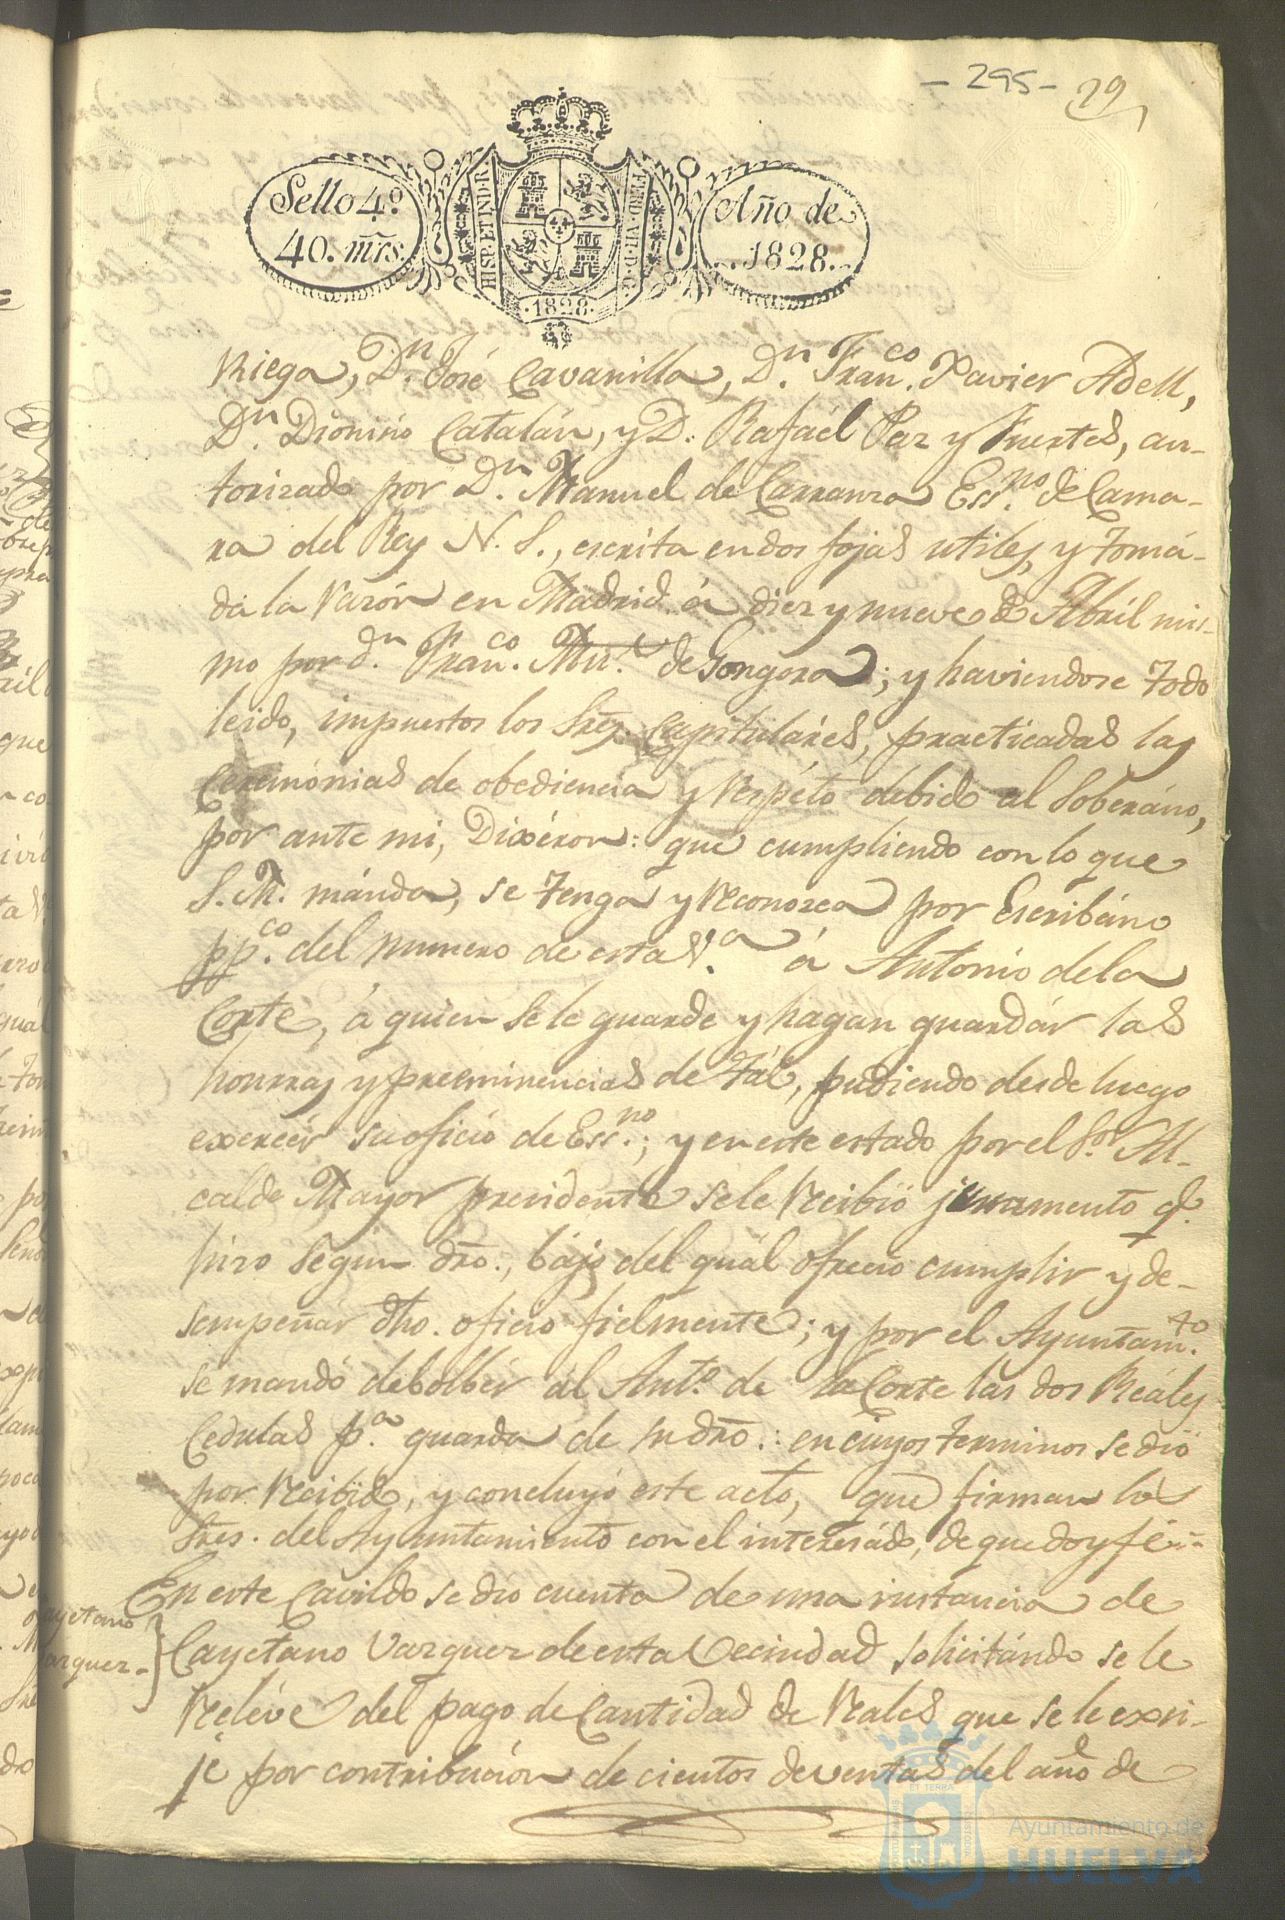 - 295 -
29
Sello 4º
40. mrs.
HISP. ET IND. R.
FERD. VII. D. G.
·1828·
Año de
1828.
Riega, Dn. José Cavanilla, Dn. Franco. Xavier Adell,
Dn. Dionisio Catalán, y D. Rafaél Paz y Fuertes, au-
torizado por Dn. Manuel de Carranza Essno. de Cama-
ra del Rey N. S., escrita en dos fojas utiles, y tomá-
da la razón en Madrid á diez y nueve de Abril mis-
mo por dn. Franco. de Gongora; y haviendose todo
leido, impuestos los Sres. Capituláres, practicadas las
Ceremónias de obediencia y respéto debido al Soberáno,
por ante mi, Dixéron: que cumpliendo con lo que
S. M. mánda, se tenga y reconozca por Escribáno
ppco. del numero de esta Va. á Antonio dela
Corte, á quien se le guarde y hagan guardár las
honrras y preeminencias de tál, pudiendo desde luego
exercér su oficio de Essno.; y en este estado por el Sor. Al-
calde Mayor presidente se le recibió juramento q.
hizo segun dro., bájo del quál ofreció cumplir y de-
sempeñár dho. oficio fielmente; y por el Ayuntamto.
se mandó debolber al Anto. de la Corte las dos Reáles
Cedulas pa. guarda de su dro.: en cuyos terminos se dió
por recibido, y concluyó este acto, que firman los
Sres. del Ayuntamiento con el interesádo, de que doy fé:-
En este Cavildo se dio cuenta de una instancia de
Cayetano
Vazquez.-
Cayetáno Vazquez de esta Vecindad solicitándo se le
reléve del pago de Cantidad de reales que se le exri-
je por contribución de cientos de ventas del año de
ET TERRA
Ayuntamiento de
HUELVA